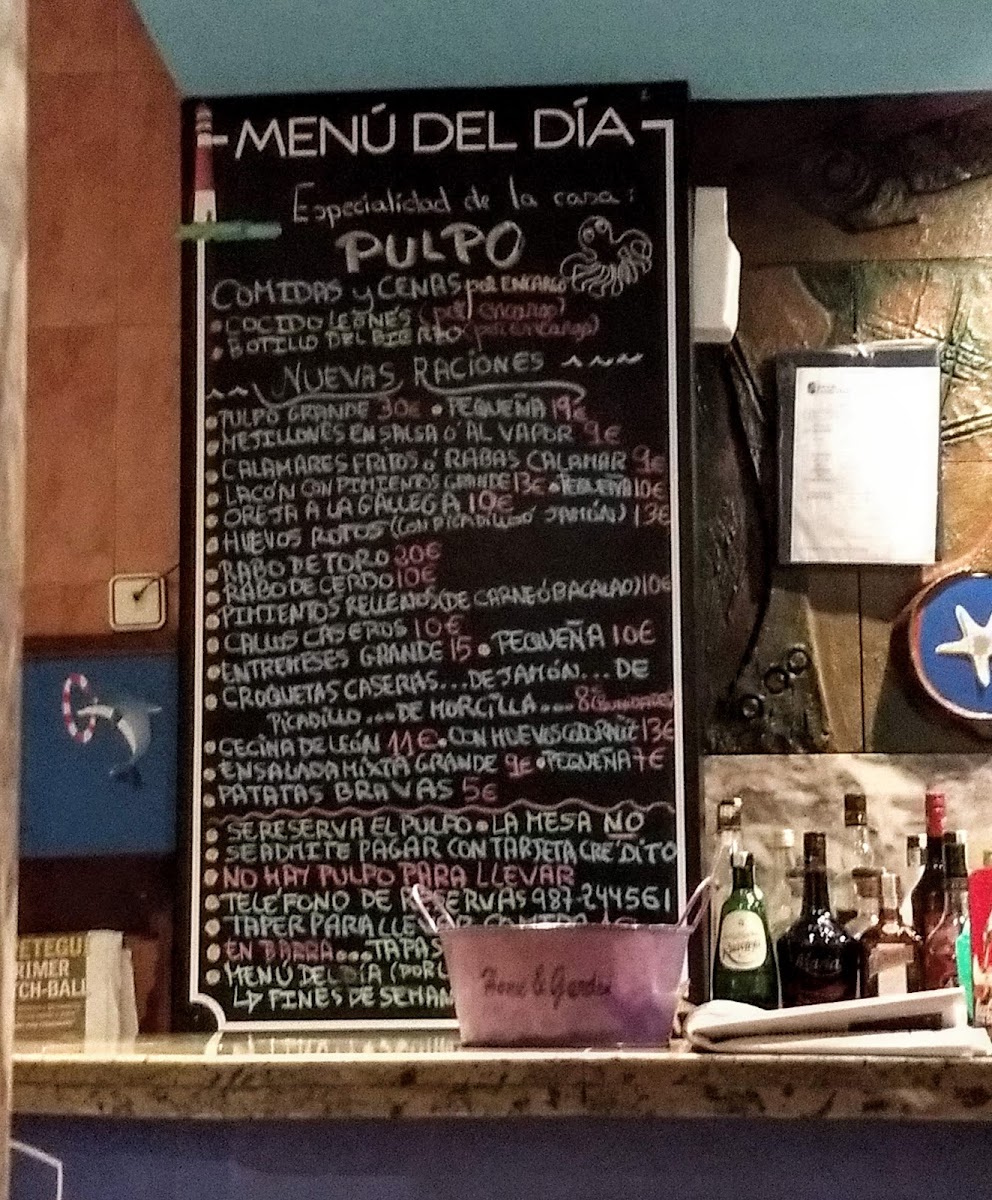 MENÚ DEL DÍA
Especialidad de la casa:
PULPO
COMIDAS y CENAS por ENCARGO
• COCIDO LEONÉS (por encargo)
• BOTILLO DEL BIERZO (por encargo)
NUEVAS RACIONES
• PULPO GRANDE 30€ • PEQUEÑA 19€
• MEJILLONES EN SALSA Ó AL VAPOR 9€
• CALAMARES FRITOS Ó RABAS CALAMAR 9€
• LACÓN CON PIMIENTOS GRANDE 13€ • PEQUEÑA 10€
• OREJA A LA GALLEGA 10€
• HUEVOS ROTOS (CON PICADILLO Ó JAMÓN) 13€
• RABO DE TORO 20€
• RABO DE CERDO 10€
• PIMIENTOS RELLENOS (DE CARNE Ó BACALAO) 10€
• CALLOS CASEROS 10€
• ENTREMESES GRANDE 15 • PEQUEÑA 10€
• CROQUETAS CASERAS... DE JAMÓN... DE
PICADILLO... DE MORCILLA... 8€
• CECINA DE LEÓN 11€ • CON HUEVOS CODORNIZ 13€
• ENSALADA MIXTA GRANDE 9€ • PEQUEÑA 7€
• PATATAS BRAVAS 5€
• SE RESERVA EL PULPO • LA MESA NO
• SE ADMITE PAGAR CON TARJETA CRÉDITO
• NO HAY PULPO PARA LLEVAR
• TELÉFONO DE RESERVAS 987-244561
• TAPER PARA LLEVAR COMIDA 1€
• EN BARRA... TAPAS
• MENÚ DEL DÍA (POR
↳ FINES DE SEMAN
Home & Garden
ETEGU
RIMER
CH-BALL